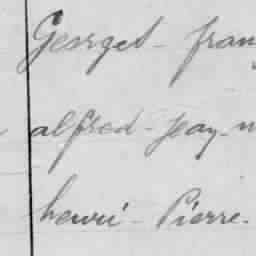 Georget - fran
alfred - jean - n
henri - Pierre.